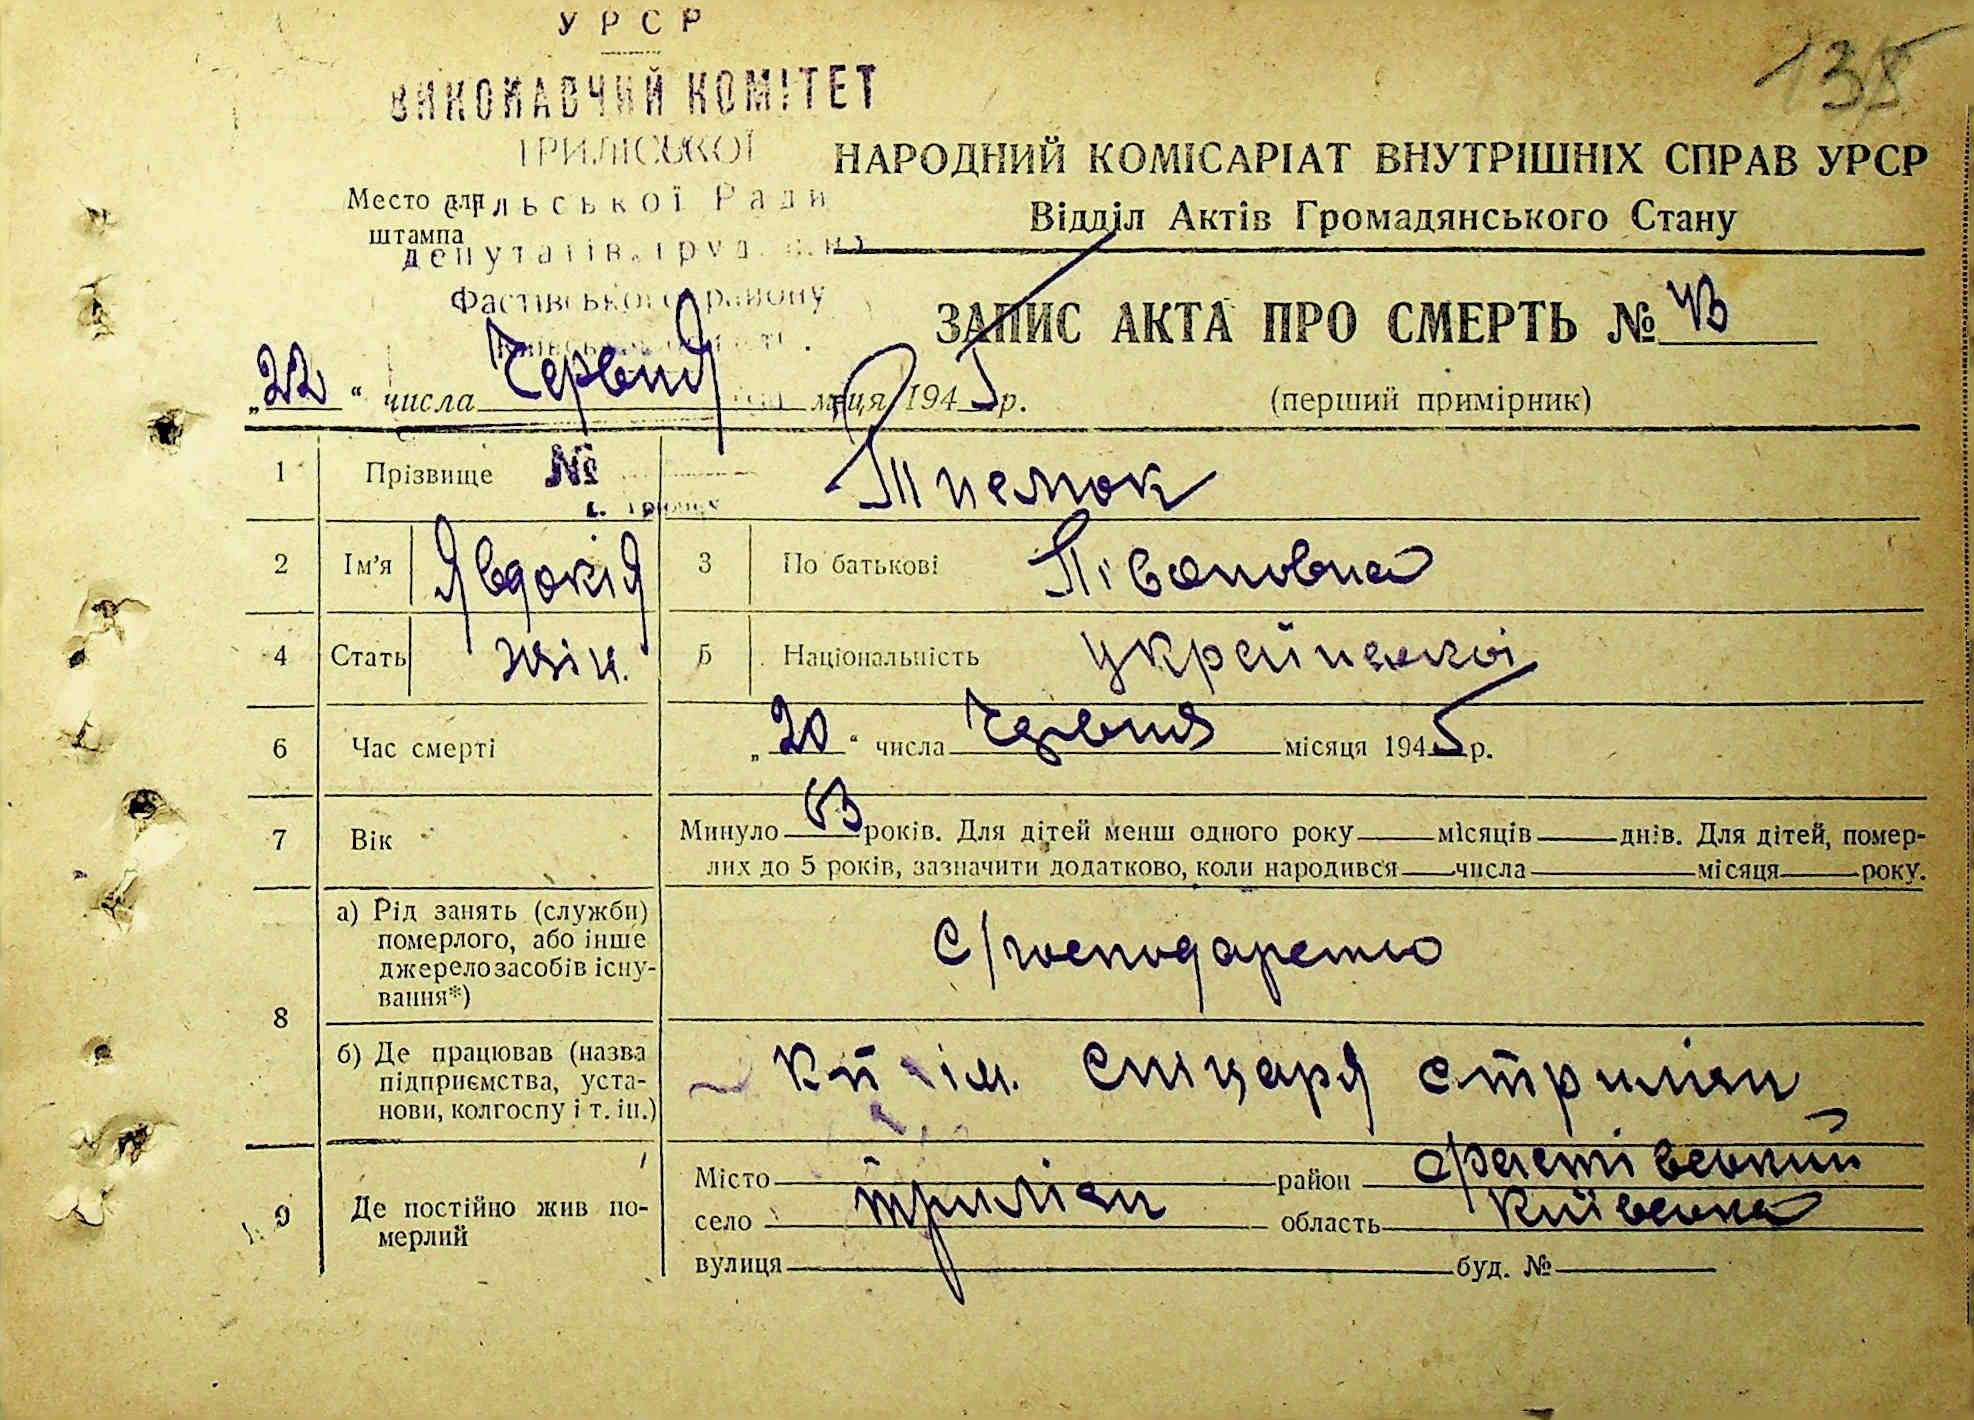 УРСР
138
ВИКОНАВЧИЙ КОМІТЕТ
ТРИЛІСЬКОЇ
НАРОДНИЙ КОМІСАРІАТ ВНУТРІШНІХ СПРАВ УРСР
Место для
сільської Ради
штампа
Відділ Актів Громадянського Стану
депутатів труд
Фастівського району
ЗАПИС АКТА ПРО СМЕРТЬ № 43
„22“ числа Червня м-ця 1945 р.
(перший примірник)
1 Прізвище
№
2 Ім'я Явдокія 3 По батькові
4 Стать жін. 5 Національність
6 Час смерті „20“ числа Червня місяця 1945 р.
7 Вік Минуло 63 років. Для дітей менш одного року місяців днів. Для дітей, помер-
лих до 5 років, зазначити додатково, коли народився числа місяця року.
8 а) Рід занять (служби)
померлого, або інше
джерело засобів існу-
вання*)
с/господарство
б) Де працював (назва
підприємства, уста-
нови, колгоспу і т. ін.)
ім.
9 Де постійно жив по-
мерлий
Місто район Фастівський
село Триліси область Київська
вулиця буд. №